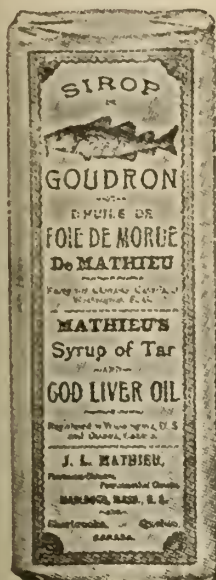 SIROP
DE
GOUDRON
D'HUILE DE
FOIE DE MORUE
De MATHIEU
MATHIEU'S
Syrup of Tar
AND
COD LIVER OIL
Registered
J. L. MATHIEU,
MARLBORO, MASS., U. S.
Sherbrooke, Quebec
CANADA.